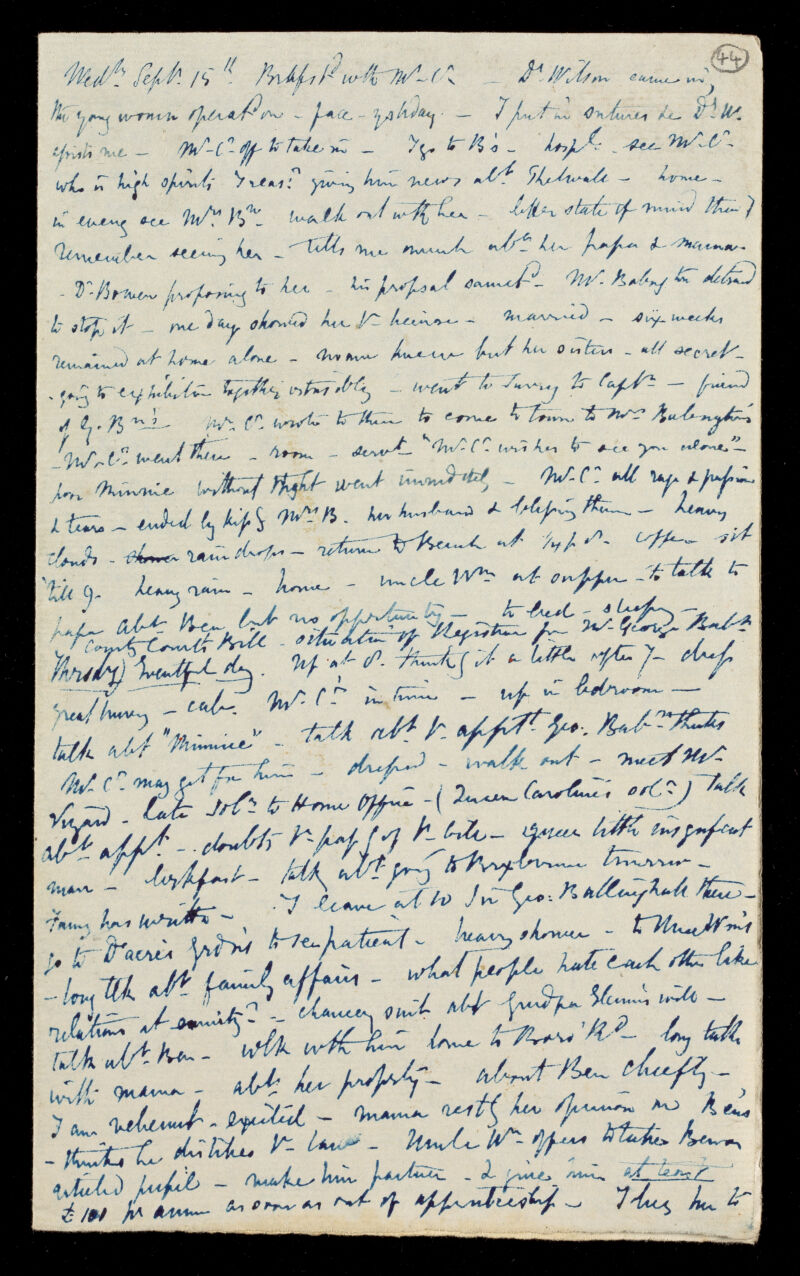 44
Wedy Septr 15th Brkfst with Mr C. - Dr Wilson came in,
the young woman operatn on - face - ystday - I put in sutures &c Dr W.
assists me - Mr C. off to take in - I go to B's - hospl - see Mr C.
who is high spirits giving him news abt Thelwall - home -
in eveng see Mrs Bn walk out with her - better state of mind than I
remember seeing her - tells me much abt her papa & mama
- Dr Bowen proposing to her - his propsal sanctd - Mr Babington detmd
to stop it - one day showed her - married - six weeks
remained at home alone - no one knew but her sisters - all secret -
- going to exhibition together ostensibly - went to Surrey to Captn - friend
of G. Bn's Mr C. wrote to them to come to town to Mrs Babington's
- Mr C. went there - room - servt "Mr C. wishes to see you alone" -
poor Minnie without thght went immdtely - Mr C. all rage & passion
& tears - ended by kissg Mrs B. her husband & blessing them - heavy
clouds - rain drops - return to at ½ p 8 - coffee - sit
'till 9 - heavy rain - home - uncle Wm at supper - to talk to
papa abt Ben but no opportunity - to bed - sleepy -
County Courts Bill - situation of Registrar for Mr George Babn
Thrsdy) Eventful day. Up at 8. thinkg it a little after 7 - dress
great hurry - cab. Mr C's in time - up in bedroom -
talk abt "Minnie" - talk abt appttt Geo. Babn thinks
Mr C. may get for him - dressed - walk out - meet Mr
Vizard - late Solr to Home Office - (Queen Caroline's solr) Talk
abt appt - doubts passg of bill - queer little insgnifcant
man - brkfast - talk abt going to Broxbourne tomorrow -
Fanny has written - I leave at 10 Sir Geo: Ballinghall there -
go to Dacre's grdns to see patient - heavy shower - to Uncle Wm's
- long tlk abt family affairs - what people hate each other like
relations at enmity? - chancery suit abt Grndpa will -
talk abt Ben - wlk with him home to Rd - long talk
with mama - abt her property - about Ben chiefly -
I am vehemt - excited - mama restg her opinion on Ben's
- thinks he dislikes law - Uncle Wm offers to take Ben as
articled pupil - make him partner - & give him at least
£100 pr annm as soon as out of apprenticeship - I beg him to